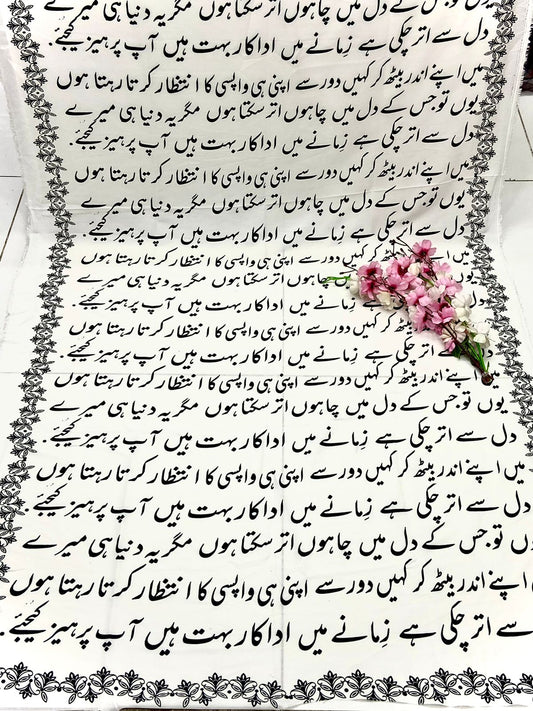 دل میں چاہوں اتر سکتا ہوں مگر یہ دنیا ہی میرے
دل سے اتر چکی ہے زِمانے میں اداکار بہت ہیں آپ پرہیز کیجیئے.
میں اپنے اندر بیٹھ کر کہیں دور سے اپنی ہی واپسی کا انتظار کرتا رہتا ہوں
یوں تو جس کے دل میں چاہوں اتر سکتا ہوں مگر یہ دنیا ہی میرے
دل سے اتر چکی ہے زِمانے میں اداکار بہت ہیں آپ پرہیز کیجیئے.
میں اپنے اندر بیٹھ کر کہیں دور سے اپنی ہی واپسی کا انتظار کرتا رہتا ہوں
یوں تو جس کے دل میں چاہوں اتر سکتا ہوں مگر یہ دنیا ہی میرے
دل سے اتر چکی ہے زِمانے میں اداکار بہت ہیں آپ پرہیز کیجیئے.
میں اپنے کر کہیں دور سے اپنی ہی واپسی کا انتظار کرتا رہتا ہوں
یوں چاہوں اتر سکتا ہوں مگر یہ دنیا ہی میرے
دل ہے زِمانے میں اداکار بہت ہیں آپ پرہیز کیجیئے.
کر کہیں دور سے اپنی ہی واپسی کا انتظار کرتا رہتا ہوں
چکی ہے زِمانے میں اداکار بہت ہیں آپ پرہیز کیجیئے.
میں اپنے اندر بیٹھ کر کہیں دور سے اپنی ہی واپسی کا انتظار کرتا رہتا ہوں
یوں تو جس کے دل میں چاہوں اتر سکتا ہوں مگر یہ دنیا ہی میرے
دل سے اتر چکی ہے زِمانے میں اداکار بہت ہیں آپ پرہیز کیجیئے.
میں اپنے اندر بیٹھ کر کہیں دور سے اپنی ہی واپسی کا انتظار کرتا رہتا ہوں
دل سے اتر چکی ہے زِمانے میں اداکار بہت ہیں آپ پرہیز کیجیئے.
تو جس کے دل میں چاہوں اتر سکتا ہوں مگر یہ دنیا ہی میرے
اپنے اندر بیٹھ کر کہیں دور سے اپنی ہی واپسی کا انتظار کرتا رہتا ہوں
سے اتر چکی ہے زِمانے میں اداکار بہت ہیں آپ پرہیز کیجیئے.